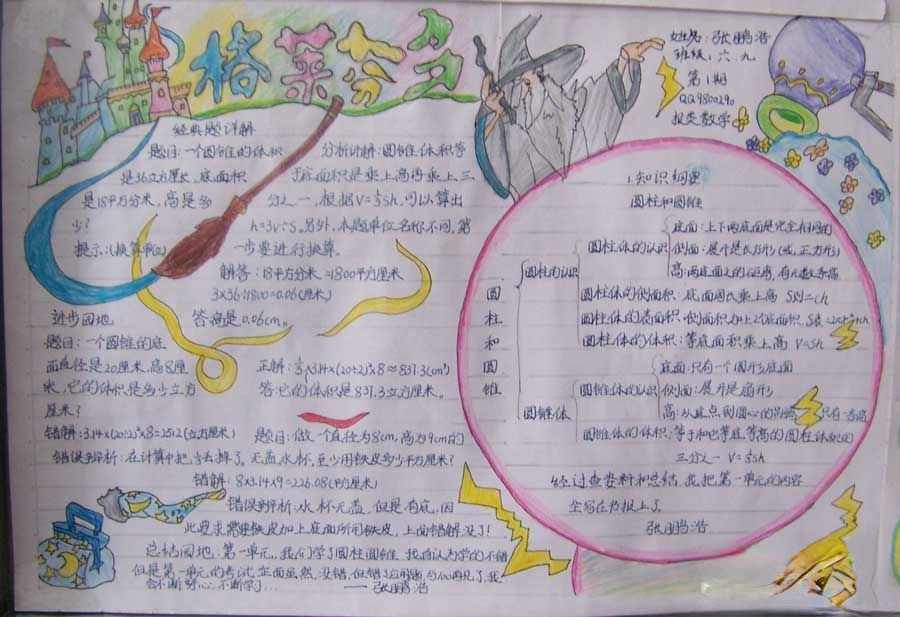 格莱芬多
姓名:张鹏浩
班级:六.九
第1期
QQ9800290
报类数学
经典题详解
题目:一个圆锥的体积
是36立方厘米,底面积
是18平方分米,高是多
少?
提示:(换算单位)
分析详解:圆锥体积等
于底面积是乘上高再乘上三
分之一,根据V=⅓sh,可以算出
h=3v÷s。另外,本题单位名称不同,第
一步要进行换算。
解答:18平方分米=1800平方厘米
3×36÷1800=0.06(厘米)
答:高是0.06cm。
进步园地
题目:一个圆锥的底
面直径是20厘米,高8厘
米,它的体积是多少立方
厘米?
错解:3.14×(20÷2)²×8=2512(立方厘米)
错误剖析:在计算中把⅓丢掉了。
正解:⅓×3.14×(20÷2)²×8≈837.3(cm³)
答:它的体积是837.3立方厘米。
题目:做一个直径为8cm,高为9cm的
无盖水杯,至少用铁皮多少平方厘米?
错解:8×3.14×9=226.08(平方厘米)
错误剖析:水杯无盖,但是有底,因
此要求需要铁皮加上底面所用铁皮,上面错解没了!
总结园地:第一单元,我们学了圆柱圆锥,我自认为学的不错
但是第一单元的考试,正面虽然,没错,但错了应用题,
会不断努力,不断学习...
——张鹏浩
1.知识纲里
圆柱和圆锥
圆柱和圆锥
圆柱的认识
圆柱体的认识
底面:上下两底面是完全相同的
侧面:展开是长方形(或,正方形)
高:两底面之间距离,有无数条高
圆柱体的侧面积:底面周长乘上高 S侧=ch
圆柱体的表面积:侧面积加上2个底面积,S表=2πr²+ch
圆柱体的体积:等底面积乘上高 V=Sh
圆锥体
圆锥体的认识
底面:只有一个圆形底面
侧面:展开是扇形
高:从顶点到圆心的距离 只有一条高
圆锥体的体积:等于和它等底等高的圆柱体积的
三分之一 V=⅓sh
经过查资料和总结,我把第一单元的内容
全写在报上了。
张鹏浩